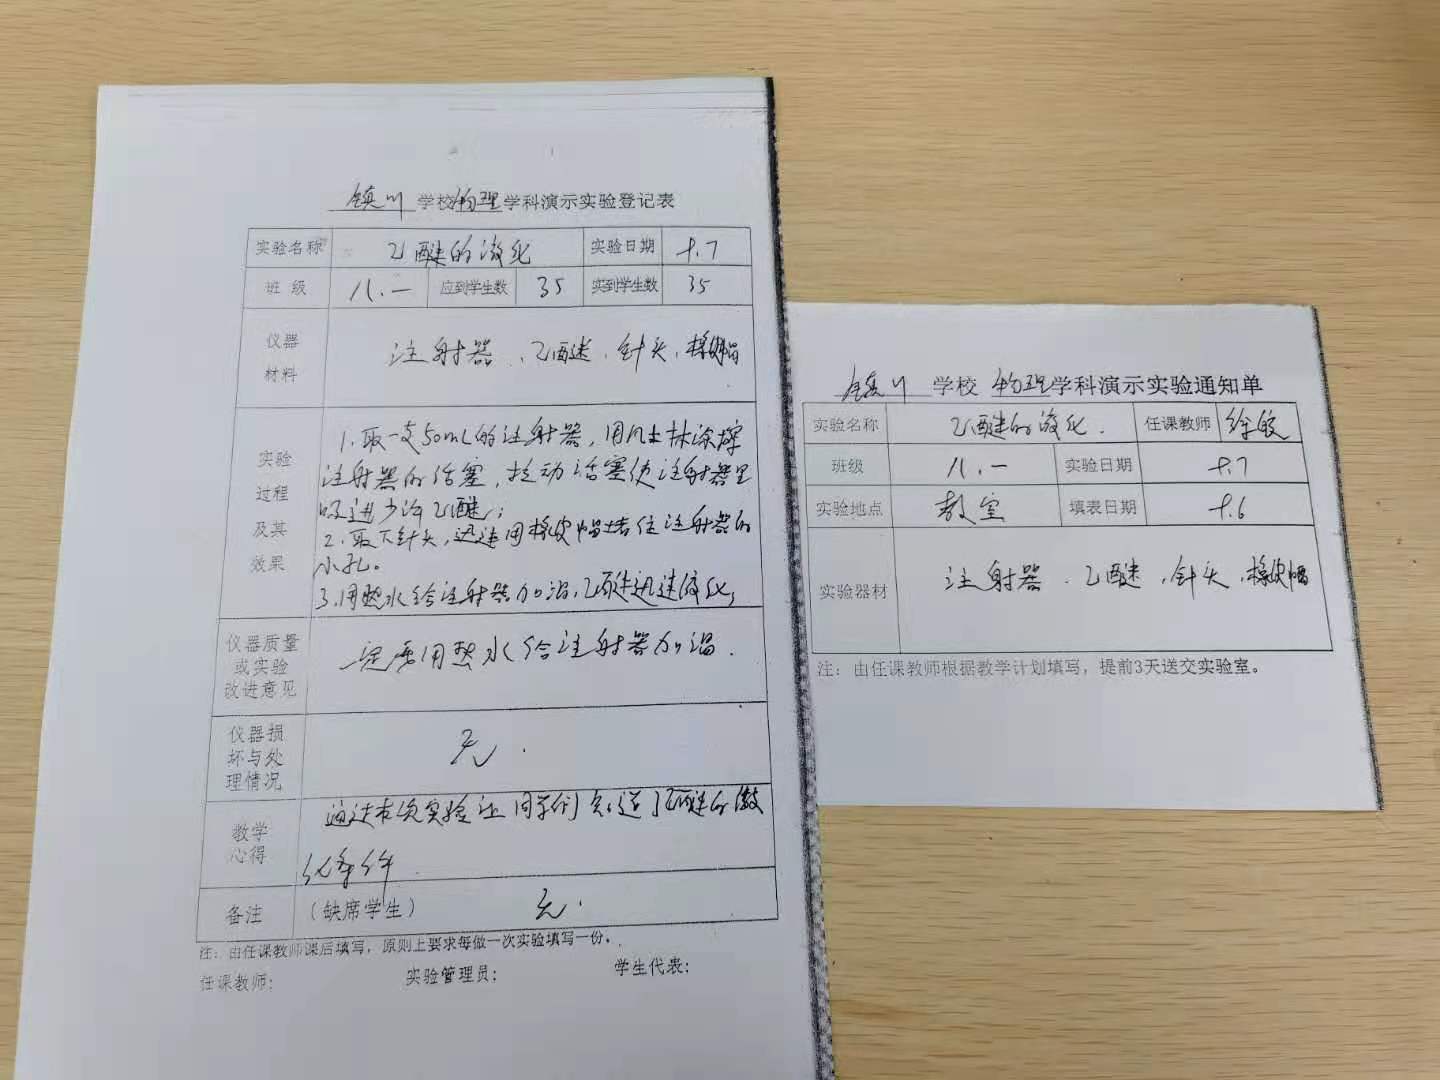 镇川 学校 物理 学科演示实验登记表
实验名称 乙醚的液化 实验日期 9.7
班 级 八.一 应到学生数 35 实到学生数 35
仪器
材料
注射器、乙醚、针头、橡皮帽
实验
过程
及其
效果
1.取一支50mL的注射器,用凡士林涂擦
注射器的活塞,拉动活塞使注射器里
吸进少许乙醚;
2.取下针头,迅速用橡皮帽堵住注射器的
小孔。
3.用热水给注射器加温,乙醚迅速液化;
仪器质量
或实验
改进意见
一定要用热水给注射器加温.
仪器损
坏与处
理情况
无.
教学
心得
通过本次实验让同学们知道了乙醚的液
化条件.
备注 (缺席学生) 无.
注:由任课教师课后填写,原则上要求每做一次实验填写一份。
任课教师: 实验管理员: 学生代表:
镇川 学校 物理 学科演示实验通知单
实验名称 乙醚的液化. 任课教师
班级 八.一 实验日期 9.7
实验地点 教室 填表日期 9.6
实验器材 注射器、乙醚、针头、橡皮帽
注:由任课教师根据教学计划填写,提前3天送交实验室。